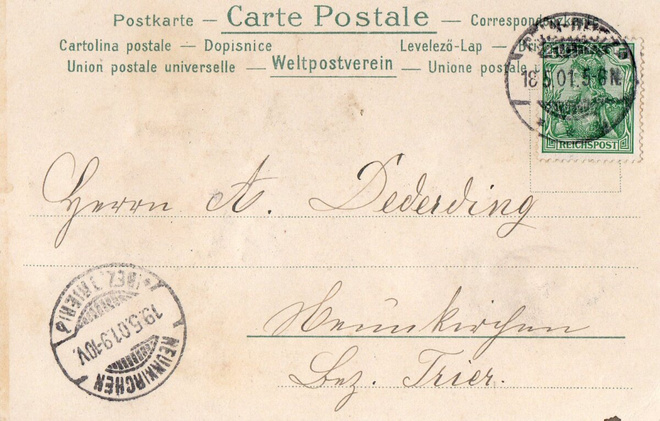 Postkarte — Carte Postale — Correspondenzkarte
Cartolina postale — Dopisnice Levelező-Lap —
Union postale universelle — Weltpostverein — Unione postale
18 5 01. 5-6N.
REICHSPOST
Herrn A. Dederding
(BEZ. TRIER)
19.5.01.9-10V.
NEUNKIRCHEN
Neunkirchen
Bez. Trier.